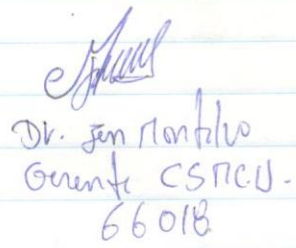 Dr. Jen Montalvo
Gerente CSMCU.
66018